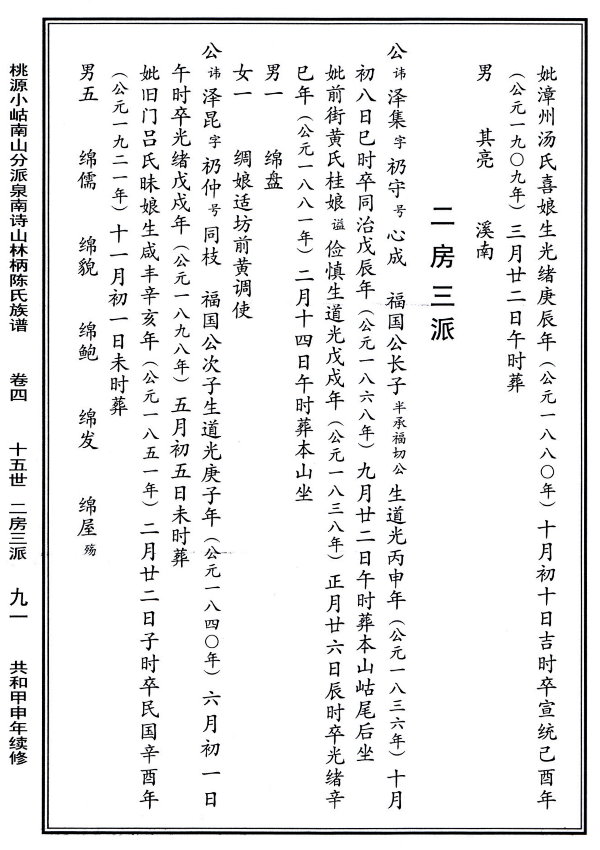 妣漳州汤氏喜娘生光绪庚辰年（公元一八八〇年）十月初十日吉时卒宣统己酉年
（公元一九〇九年）三月廿二日午时葬
男 其亮 溪南
二房三派
公讳泽集字礽守号心成 福国公长子半承福切公生道光丙申年（公元一八三六年）十月
初八日巳时卒同治戊辰年（公元一八六八年）九月廿二日午时葬本山岵尾后坐
妣前街黄氏桂娘谥俭慎生道光戊戌年（公元一八三八年）正月廿六日辰时卒光绪辛
巳年（公元一八八一年）二月十四日午时葬本山坐
男一 绵盘
女一 绸娘适坊前黄调使
公讳泽昆字礽仲号同枝 福国公次子生道光庚子年（公元一八四〇年）六月初一日
午时卒光绪戊戌年（公元一八九八年）五月初五日未时葬
妣旧门吕氏昧娘生咸丰辛亥年（公元一八五一年）二月廿二日子时卒民国辛酉年
（公元一九二一年）十一月初一日未时葬
男五 绵儒 绵貌 绵鲍 绵发 绵屋殇
桃源小岵南山分派泉南诗山林柄陈氏族谱 卷四 十五世 二房三派 九一 共和甲申年续修